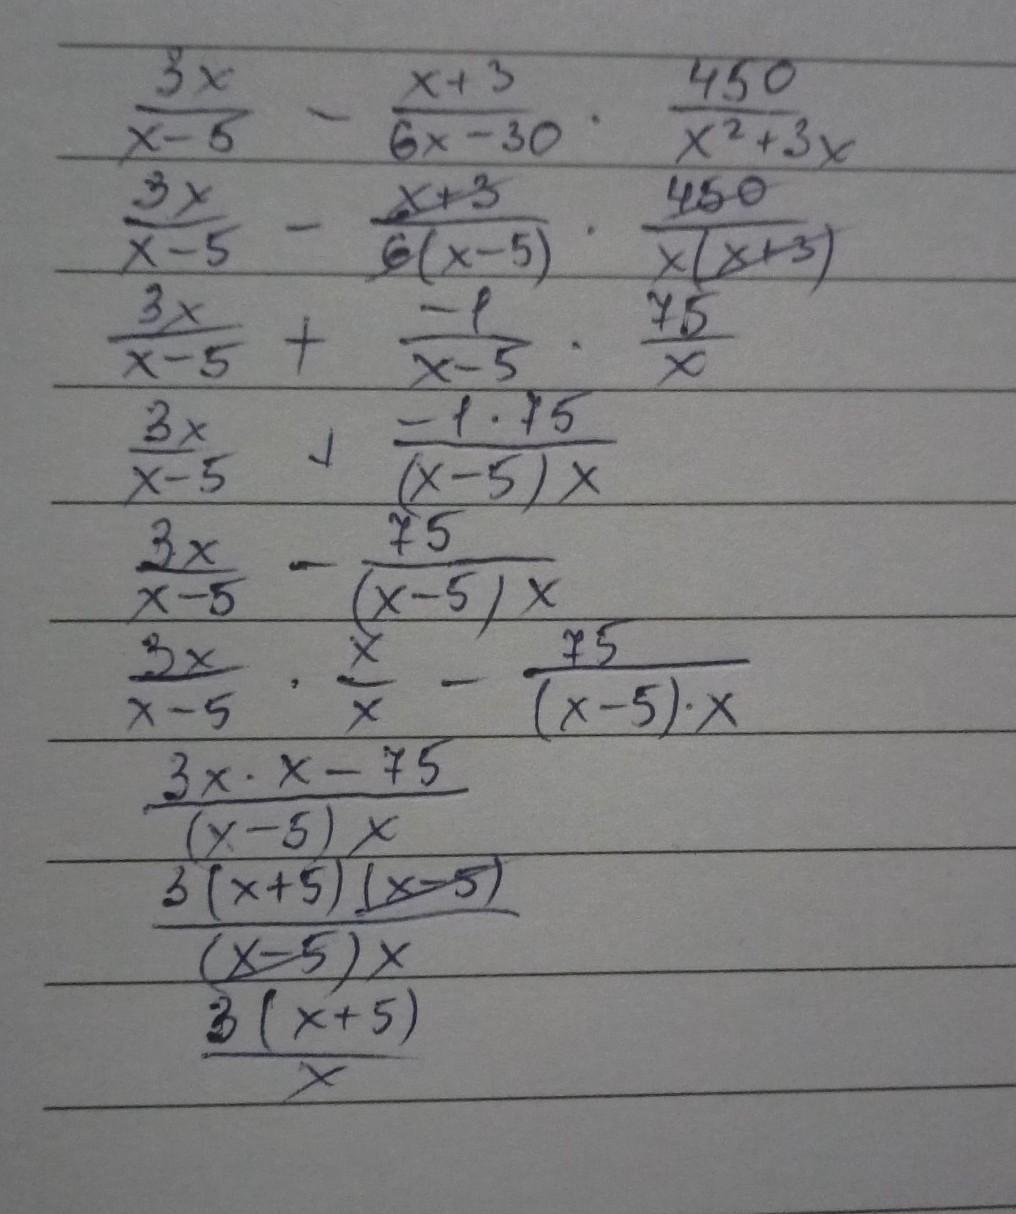 3x/(x-5) - (x+3)/(6x-30) · 450/(x²+3x)
3x/(x-5) - (x+3)/(6(x-5)) · 450/(x(x+3))
3x/(x-5) + (-1)/(x-5) · 75/x
3x/(x-5) + (-1·75)/((x-5)x)
3x/(x-5) - 75/((x-5)x)
3x/(x-5) · x/x - 75/((x-5)·x)
(3x·x-75)/((x-5)x)
(3(x+5)(x-5))/((x-5)x)
(3(x+5))/x